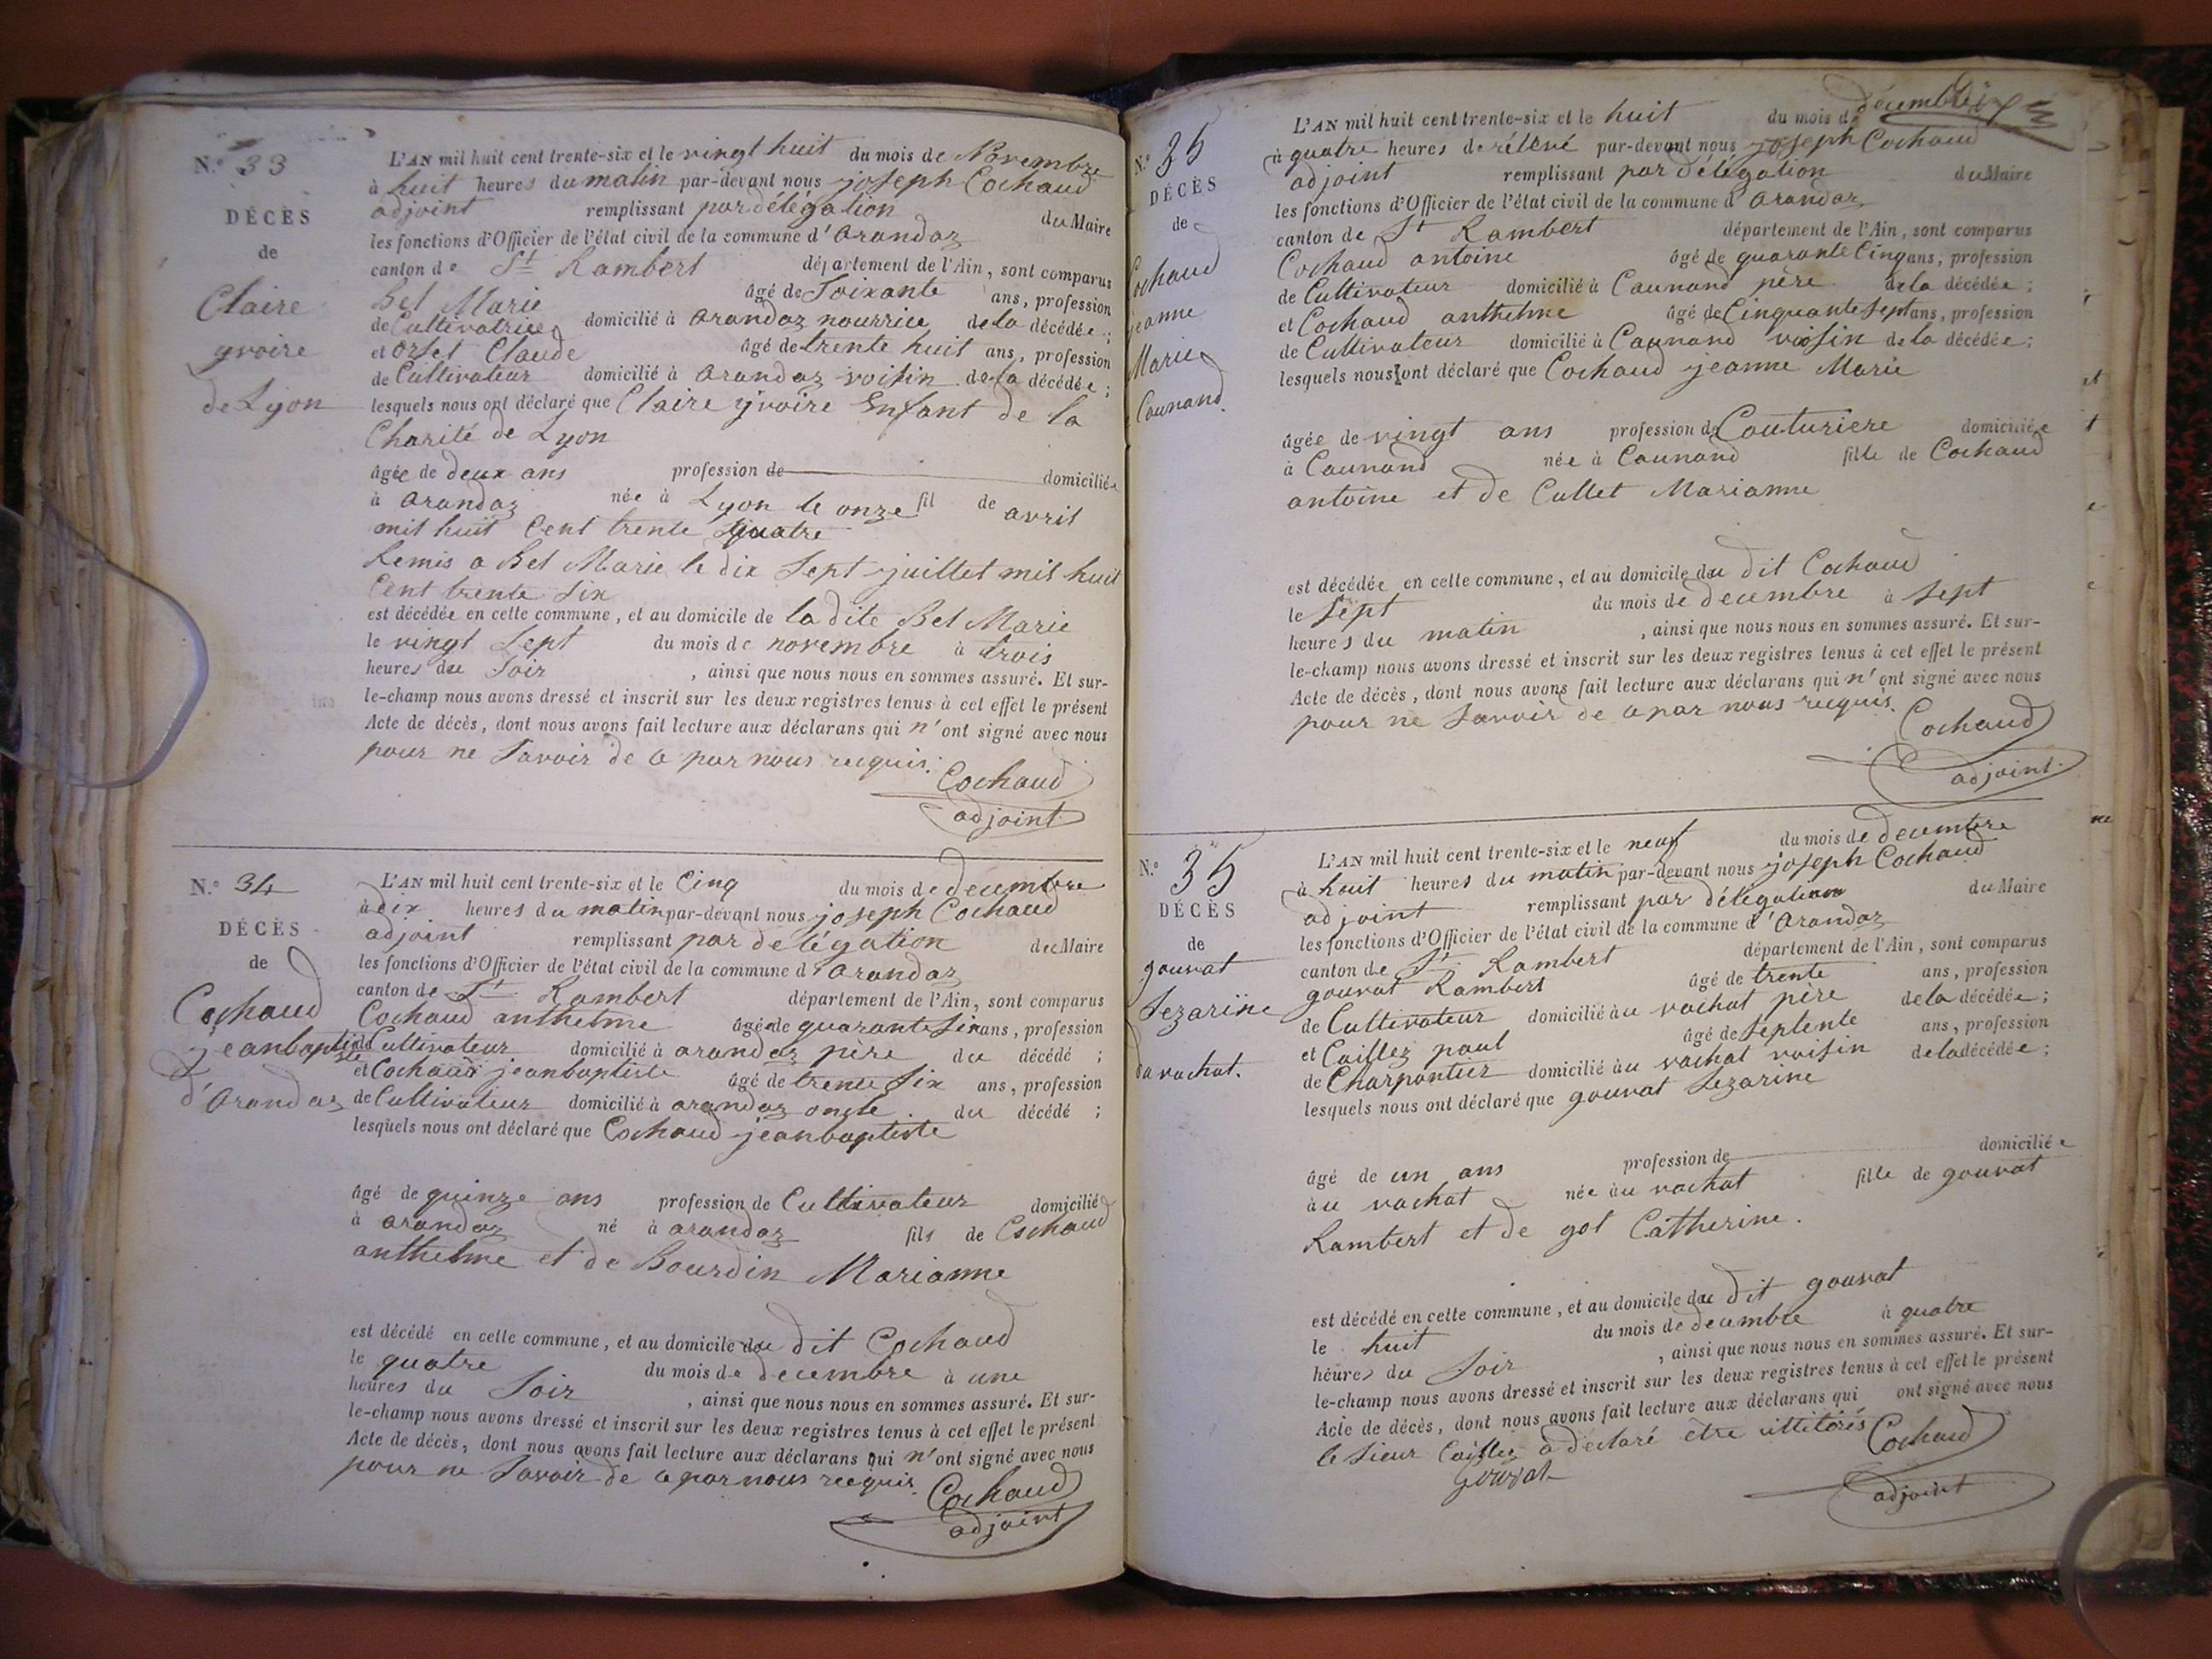 N.° 33
DÉCÈS
de
Claire
yvoire
de Lyon
L'AN mil huit cent trente-six et le vingt huit du mois de Novembre
à huit heures du matin par-devant nous joseph Cochaud
adjoint remplissant par délégation du Maire
les fonctions d'Officier de l'état civil de la commune d' arandaz
canton de St Rambert département de l'Ain, sont comparus
Bel Marie âgé de Soixante ans, profession
de Cultivatrice domicilié à arandaz nourrice de la décédée ;
et orset Claude âgé de trente huit ans, profession
de Cultivateur domicilié à arandaz voisin de la décédée ;
lesquels nous ont déclaré que Claire yvoire Enfant de la
Charité de Lyon
âgée de deux ans profession de domiciliée
à arandaz née à Lyon le onze fil de avril
mil huit Cent trente quatre
Remis a Bel Marie le dix Sept juillet mil huit
Cent trente Six
est décédée en cette commune, et au domicile de la dite Bel Marie
le vingt Sept du mois de novembre à trois
heures du Soir , ainsi que nous nous en sommes assuré. Et sur-
le-champ nous avons dressé et inscrit sur les deux registres tenus à cet effet le présent
Acte de décès, dont nous avons fait lecture aux déclarans qui n'ont signé avec nous
pour ne Savoir de ce par nous requis.
Cochaud
adjoint
N.° 34
DÉCÈS
de
Cochaud
jeanbaptiste
d'arandaz
L'AN mil huit cent trente-six et le Cinq du mois de decembre
à dix heures du matin par-devant nous joseph Cochaud
adjoint remplissant par delégation du Maire
les fonctions d'Officier de l'état civil de la commune d' arandaz
canton de St Rambert département de l'Ain, sont comparus
Cochaud anthelme âgé de quarante Six ans, profession
de Cultivateur domicilié à arandaz père du décédé ;
et Cochaud jeanbaptiste âgé de trente Six ans, profession
de Cultivateur domicilié à arandaz oncle du décédé ;
lesquels nous ont déclaré que Cochaud jeanbaptiste
âgé de quinze ans profession de Cultivateur domicilié
à arandaz né à arandaz fils de Cochaud
anthelme et de Bourdin Marianne
est décédé en cette commune, et au domicile du dit Cochaud
le quatre du mois de decembre à une
heures du Soir , ainsi que nous nous en sommes assuré. Et sur-
le-champ nous avons dressé et inscrit sur les deux registres tenus à cet effet le présent
Acte de décès, dont nous avons fait lecture aux déclarans qui n'ont signé avec nous
pour ne Savoir de ce par nous requis.
Cochaud
adjoint
N.° 35
DÉCÈS
de
Cochaud
jeanne
Marie
Counand.
L'AN mil huit cent trente-six et le huit du mois de décembre
à quatre heures de rélevé par-devant nous joseph Cochaud
adjoint remplissant par délégation du Maire
les fonctions d'Officier de l'état civil de la commune d' arandaz
canton de St Rambert département de l'Ain, sont comparus
Cochaud antoine âgé de quarante Cinq ans, profession
de Cultivateur domicilié à Counand père de la décédée ;
et Cochaud anthelme âgé de Cinquante Sept ans, profession
de Cultivateur domicilié à Counand voisin de la décédée ;
lesquels nous ont déclaré que Cochaud jeanne Marie
âgée de vingt ans profession de Couturiere domiciliée
à Counand née à Counand fille de Cochaud
antoine et de Cullet Marianne
est décédée en cette commune, et au domicile du dit Cochaud
le Sept du mois de decembre à Sept
heures du matin , ainsi que nous nous en sommes assuré. Et sur-
le-champ nous avons dressé et inscrit sur les deux registres tenus à cet effet le présent
Acte de décès, dont nous avons fait lecture aux déclarans qui n'ont signé avec nous
pour ne Savoir de ce par nous requis.
Cochaud
adjoint
N.° 35
DÉCÈS
de
gouvat
Sezarine
du vachat.
L'AN mil huit cent trente-six et le neuf du mois de decembre
à huit heures du matin par-devant nous joseph Cochaud
adjoint remplissant par délégation du Maire
les fonctions d'Officier de l'état civil de la commune d' arandaz
canton de St Rambert département de l'Ain, sont comparus
gouvat Rambert âgé de trente ans, profession
de Cultivateur domicilié au vachat père de la décédée ;
et Caillez paul âgé de Septente ans, profession
de Charpantier domicilié au vachat voisin de la décédée ;
lesquels nous ont déclaré que gouvat Sezarine
âgé de un ans profession de domiciliée
au vachat née au vachat fille de gouvat
Rambert et de got Catherine.
est décédé en cette commune, et au domicile du dit gouvat
le huit du mois de decembre à quatre
heures du Soir , ainsi que nous nous en sommes assuré. Et sur-
le-champ nous avons dressé et inscrit sur les deux registres tenus à cet effet le présent
Acte de décès, dont nous avons fait lecture aux déclarans qui ont signé avec nous
le Sieur Caillez a déclaré etre illitérés
Cochaud
gouvat
adjoint